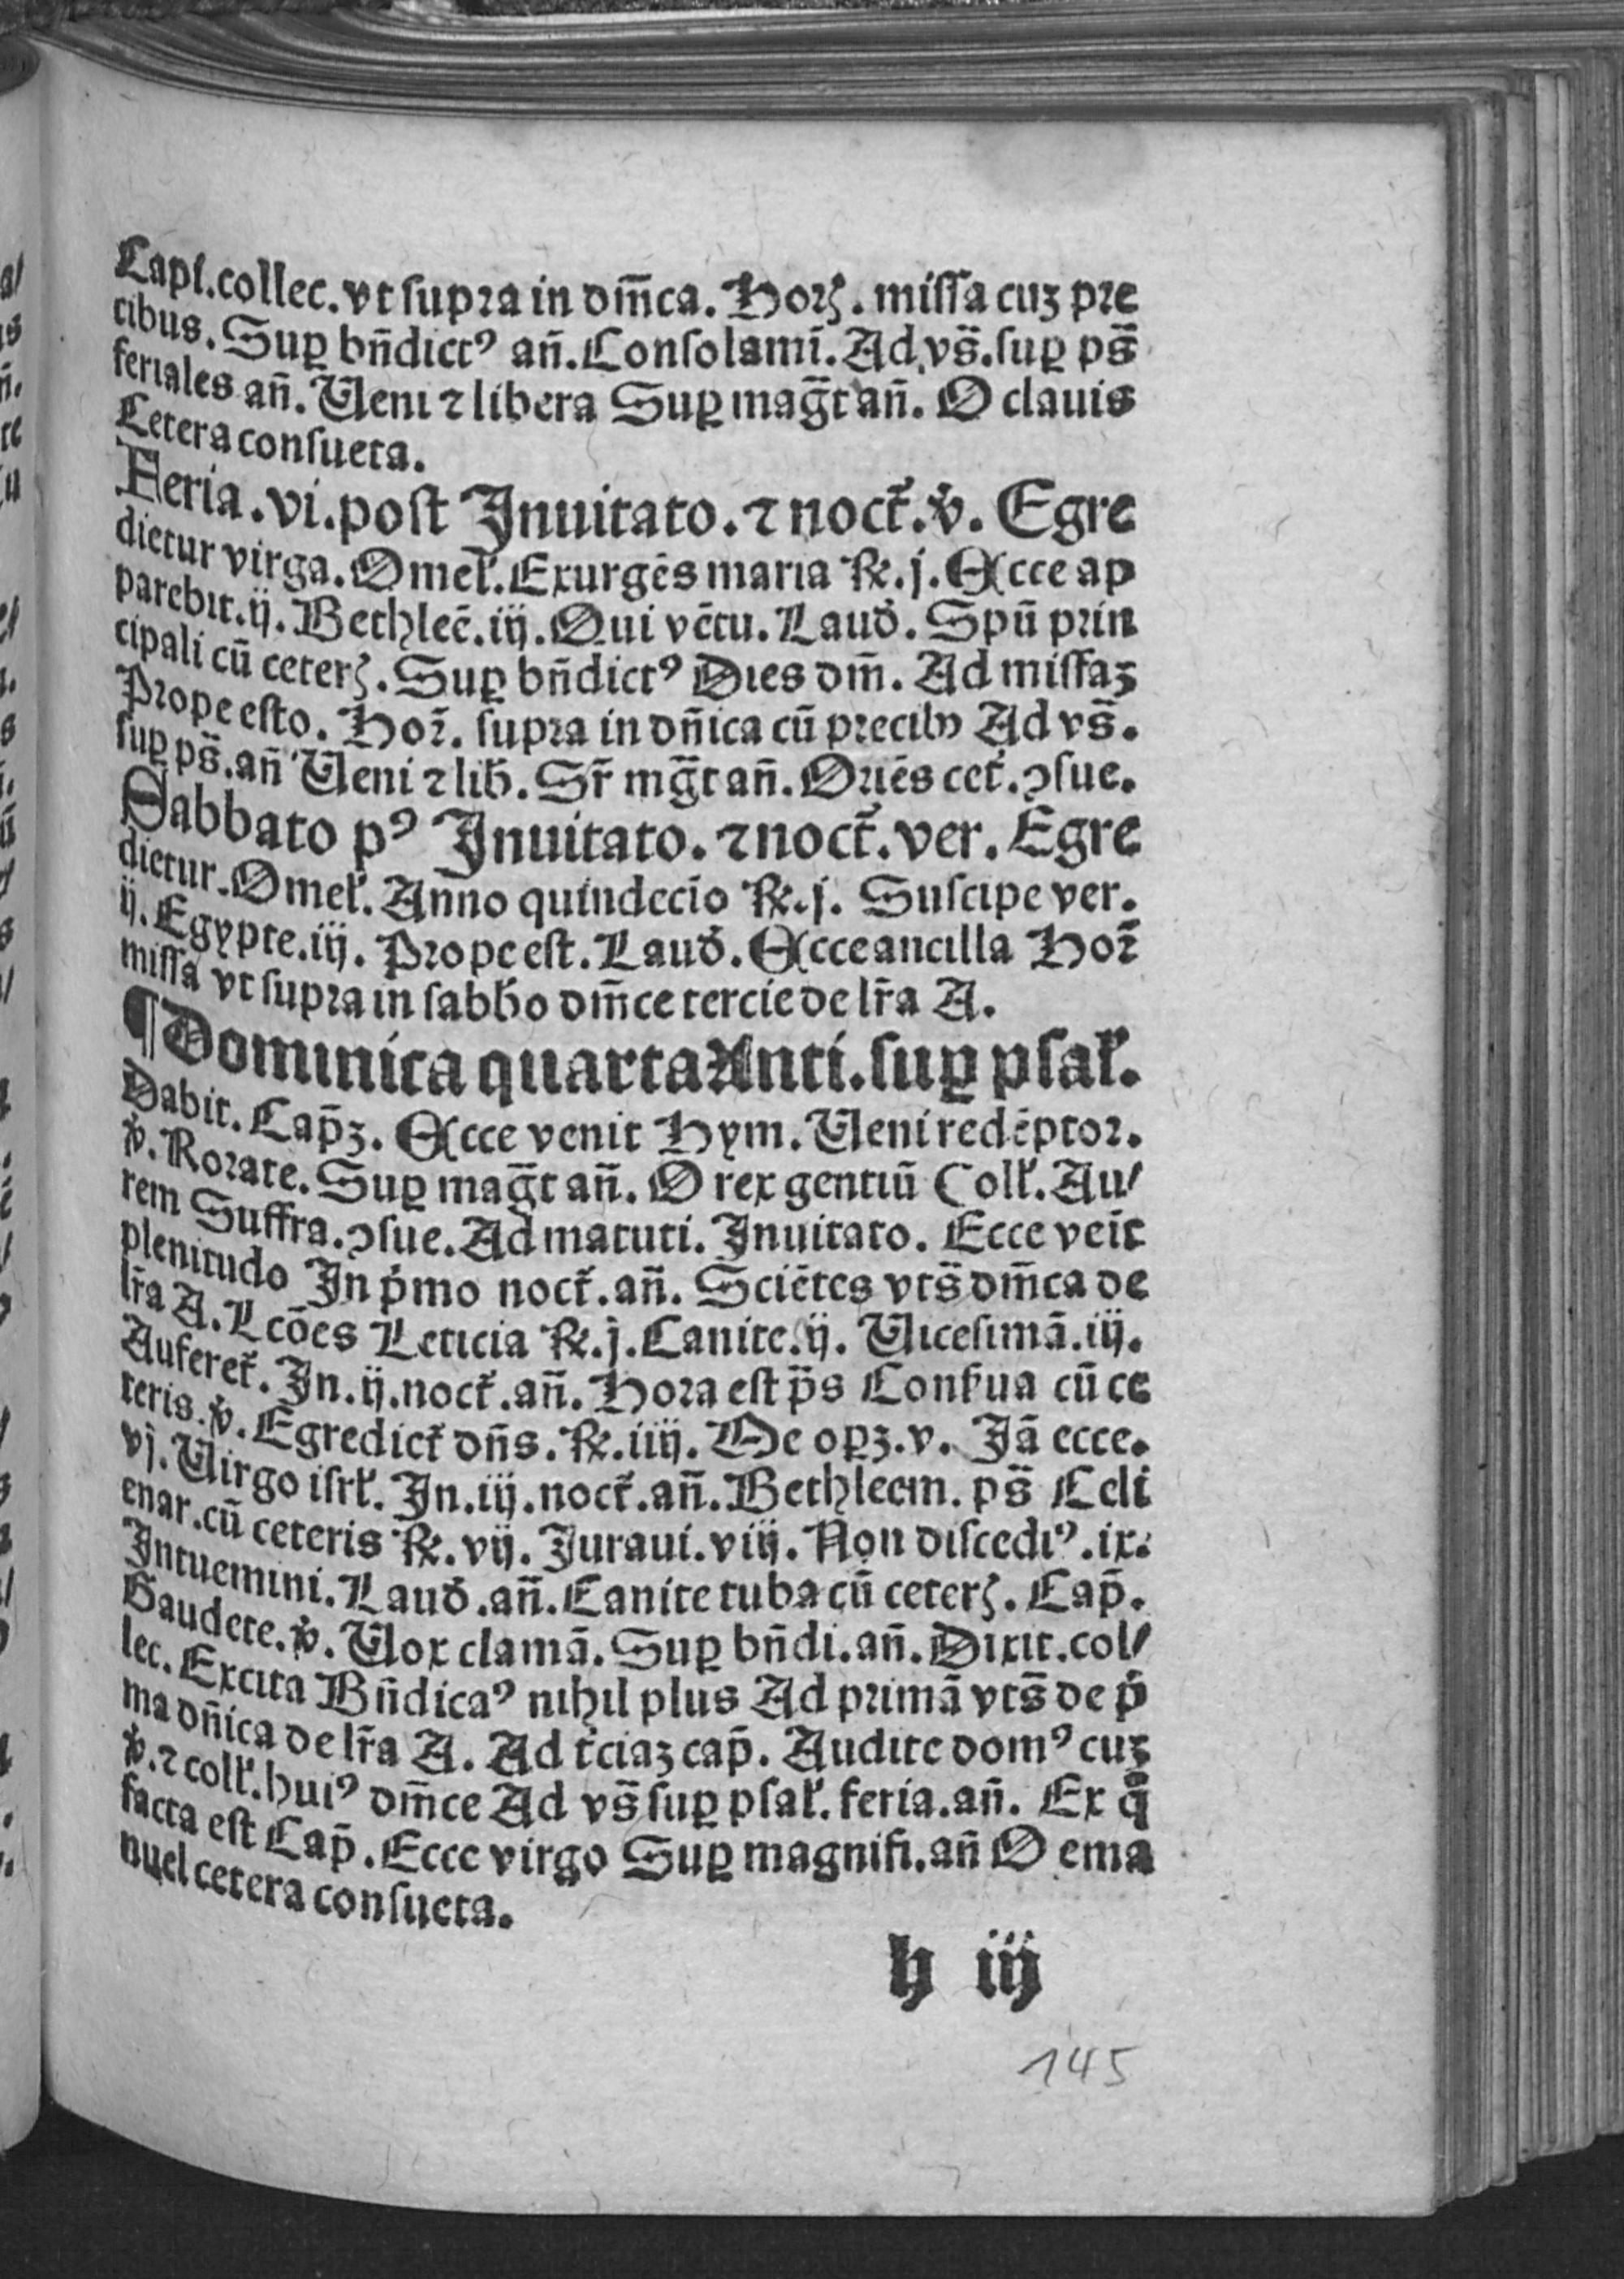 Capl.collec.vt supra in dm̄ca. Horꝭ. missa cuꝫ pre
cibus. Suꝑ bn̄dictꝰ an̄. Consolamī. Ad vs̄.suꝑ ps̄
feriales an̄. Veni ⁊ libera Suꝑ mag̅t an̄. O clauis
Cetera consueta.
Feria.vi.post Inuitato.⁊ noct̄.℣. Egre
dietur virga. Omel̓. Exurgēs maria ℟.j. Ecce ap
parebit.ij. Bethleē.iij. Qui vētu. Laud̓. Spū prin
cipali cū ceterꝭ. Suꝑ bn̄dictꝰ Dies dm̄. Ad missaꝫ
Prope esto. Hor̄. supra in dn̄ica cū precibꝰ Ad vs̄.
suꝑ ps̄.an̄ Veni ⁊ lib̓. Sr̄ mg̅t an̄. Oriēs cet̄.ↄsue.
Sabbato pꝰ Inuitato. ⁊ noct̄.ver. Egre
dietur. Omel̓. Anno quindecīo ℟.j. Suscipe ver.
ij. Egypte.iij. Prope est. Laud̓. Ecce ancilla Hor̄
missa vt supra in sabb̓o dm̄ce tercie de lr̄a A.
¶Dominica quarta Anti.suꝑ psal̓.
Dabit. Cap̄ꝫ. Ecce venit Hym. Veni redēptor.
℣. Rorate. Suꝑ mag̅t an̄. O rex gentiū Coll̓. Au/
rem Suffra.ↄsue. Ad matuti. Inuitato. Ecce veīt
plenitudo In p̓mo noct̄.an̄. Sciētes vts̄ dm̄ca de
lr̄a A. Lcōes Leticia ℟.j. Canite.ij. Vicesimā.iij.
Auferet̄. In.ij.noct̄.an̄. Hora est p̄s Conſ̓ua cū ce
teris.℣. Egrediet̄ dn̄s. ℟.iiij. Me oꝑꝫ.v. Jā ecce.
vj. Virgo isrl̓. In.iij.noct̄.an̄. Bethleem. ps̄ Celi
enar.cū ceteris ℟.vij. Juraui.viij. Non discediꝰ.ix.
Intuemini. Laud̓.an̄. Canite tuba cū ceterꝭ. Cap̄.
Gaudete.℣. Vox clamā. Suꝑ bn̄di.an̄. Dixit.col/
lec. Excita Bn̄dicaꝰ nihil plus Ad primā vts̄ de p̓
ma dn̄ica de lr̄a A. Ad t̓ciaꝫ cap̄. Audite domꝰ cuꝫ
℣.⁊ coll̓.huiꝰ dm̄ce Ad vs̄ suꝑ psal̓. feria.an̄. Ex q̊
facta est Cap̄. Ecce virgo Suꝑ magnifi.an̄ O ema
nuel cetera consueta.
h iij
145